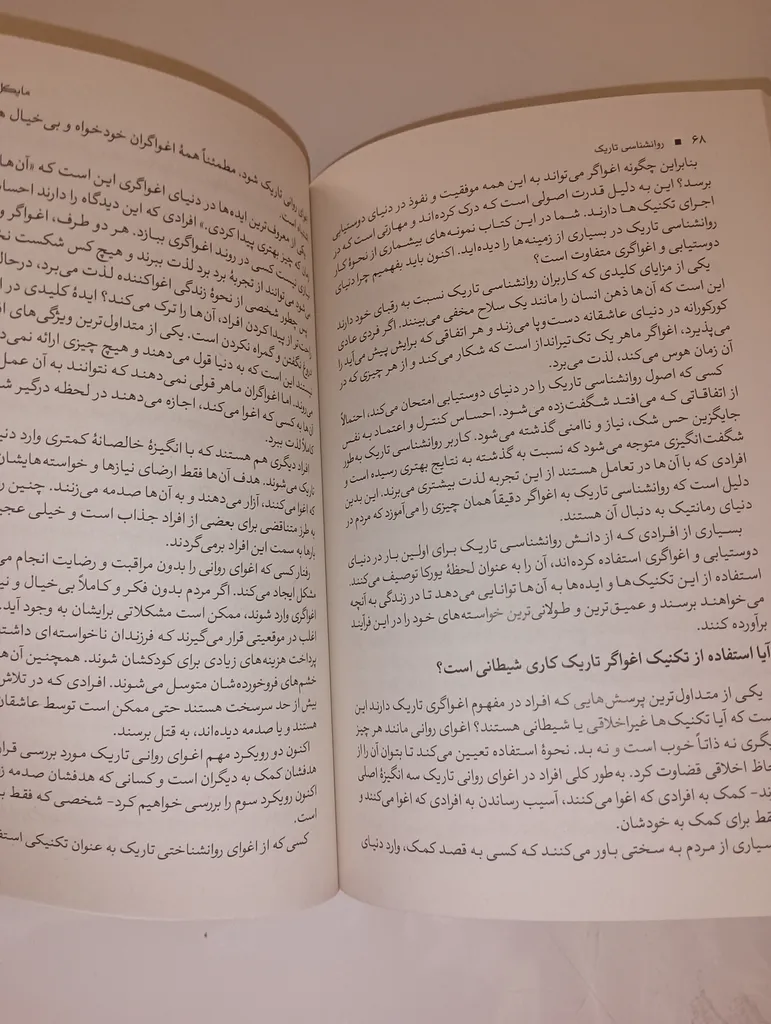 ۶۸ ■ روانشناسی تاریک
بنابراین چگونه اغواگر می‌تواند به این همه موفقیت و نفوذ در دنیای دوستیابی
برسد؟ این به دلیل قدرت اصولی است که درک کرده‌اند و مهارتی است که در
اجرای تکنیک‌ها دارند. شما در این کتاب نمونه‌های بیشماری از نحوهٔ کار
روانشناسی تاریک در بسیاری از زمینه‌ها را دیده‌اید. اکنون باید بفهمیم چرا دنیای
دوستیابی و اغواگری متفاوت است؟
یکی از مزایای کلیدی که کاربران روانشناسی تاریک نسبت به رقبای خود دارند
این است که آن‌ها ذهن انسان را مانند یک سلاح مخفی می‌بینند. اگر فردی عادی
کورکورانه در دنیای عاشقانه دست‌وپا می‌زند و هر اتفاقی که برایش پیش می‌آید را
می‌پذیرد، اغواگر ماهر یک تک‌تیرانداز است که شکار می‌کند و از هر چیزی که در
آن زمان هوس می‌کند، لذت می‌برد.
کسی که اصول روانشناسی تاریک را در دنیای دوستیابی امتحان می‌کند، احتمالاً
از اتفاقاتی که می‌افتد شگفت‌زده می‌شود. احساس کنترل و اعتماد به نفس
جایگزین حس شک، نیاز و ناامنی گذشته می‌شود. کاربر روانشناسی تاریک به‌طور
شگفت‌انگیزی متوجه می‌شود که نسبت به گذشته به نتایج بهتری رسیده است و
افرادی که با آن‌ها در تعامل هستند از این تجربه لذت بیشتری می‌برند. این بدین
دلیل است که روانشناسی تاریک به اغواگر دقیقاً همان چیزی را می‌آموزد که مردم در
دنیای رمانتیک به دنبال آن هستند.
بسیاری از افرادی که از دانش روانشناسی تاریک برای اولین بار در دنیای
دوستیابی و اغواگری استفاده کرده‌اند، آن را به عنوان لحظهٔ یورکا توصیف می‌کنند.
استفاده از این تکنیک‌ها و ایده‌ها به آن‌ها توانایی می‌دهد تا در زندگی به آنچه
می‌خواهند برسند و عمیق‌ترین و طولانی‌ترین خواسته‌های خود را در این فرآیند
برآورده کنند.
آیا استفاده از تکنیک اغواگر تاریک کاری شیطانی است؟
یکی از متداول‌ترین پرسش‌هایی که افراد در مفهوم اغواگری تاریک دارند این
ست که آیا تکنیک‌ها غیراخلاقی یا شیطانی هستند؟ اغوای روانی مانند هر چیز
یگری نه ذاتاً خوب است و نه بد. نحوهٔ استفاده تعیین می‌کند تا بتوان آن را از
حاظ اخلاقی قضاوت کرد. به‌طور کلی افراد در اغوای روانی تاریک سه انگیزهٔ اصلی
ند- کمک به افرادی که اغوا می‌کنند، آسیب رساندن به افرادی که اغوا می‌کنند و
قط برای کمک به خودشان.
سیاری از مردم به سختی باور می‌کنند که کسی به قصد کمک، وارد دنیای
مایکل
روانی تاریک شود. مطمئناً همهٔ اغواگران خودخواه و بی‌خیال
است.
یکی از معروف‌ترین ایده‌ها در دنیای اغواگری این است که «آن‌ها
که چیز بهتری پیدا کردی.» افرادی که این دیدگاه را دارند احساس
نیست کسی در روند اغواگری ببازد. هر دو طرف، اغواگر و
می‌توانند از تجربهٔ برد برد لذت ببرند و هیچ کس شکست
پس چطور شخصی از نحوهٔ زندگی اغواکننده لذت می‌برد، درحال
از پیدا کردن افراد، آن‌ها را ترک می‌کند؟ ایدهٔ کلیدی در
دروغ نگفتن و گمراه نکردن است. یکی از متداول‌ترین ویژگی‌های
این است که به دنیا قول می‌دهند و هیچ چیزی ارائه نمی‌د
اما اغواگران ماهر قولی نمی‌دهند که نتوانند به آن عمل
آن‌ها به کسی که اغوا می‌کند، اجازه می‌دهند در لحظه درگیر ش
کاملاً لذت ببرد.
افراد دیگری هم هستند که با انگیزهٔ خالصانهٔ کمتری وارد دنی
تاریک می‌شوند. هدف آن‌ها فقط ارضای نیازها و خواسته‌هایشان
که اغوا می‌کنند، آزار می‌دهند و به آن‌ها صدمه می‌زنند. چنین
به طرز متناقضی برای بعضی از افراد جذاب است و خیلی عجی
بارها به سمت این افراد برمی‌گردند.
رفتار کسی که اغوای روانی را بدون مراقبت و رضایت انجام می
مشکل ایجاد می‌کند. اگر مردم بدون فکر و کاملاً بی‌خیال و نی
اغواگری وارد شوند، ممکن است مشکلاتی برایشان به وجود آید.
اغلب در موقعیتی قرار می‌گیرند که فرزندان ناخواسته‌ای داشته
پرداخت هزینه‌های زیادی برای کودکشان شوند. همچنین آن‌ها
خشم‌های فروخورده‌شان متوسل می‌شوند. افرادی که در تلاش
بیش از حد سرسخت هستند حتی ممکن است توسط عاشقان
هستند و یا صدمه دیده‌اند، به قتل برسند.
اکنون دو رویکرد مهم اغوای روانی تاریک مورد بررسی قرار
هدفشان کمک به دیگران است و کسانی که هدفشان صدمه ز
اکنون رویکرد سوم را بررسی خواهیم کرد- شخصی که فقط ب
است.
کسی که از اغوای روانشناختی تاریک به عنوان تکنیکی استف